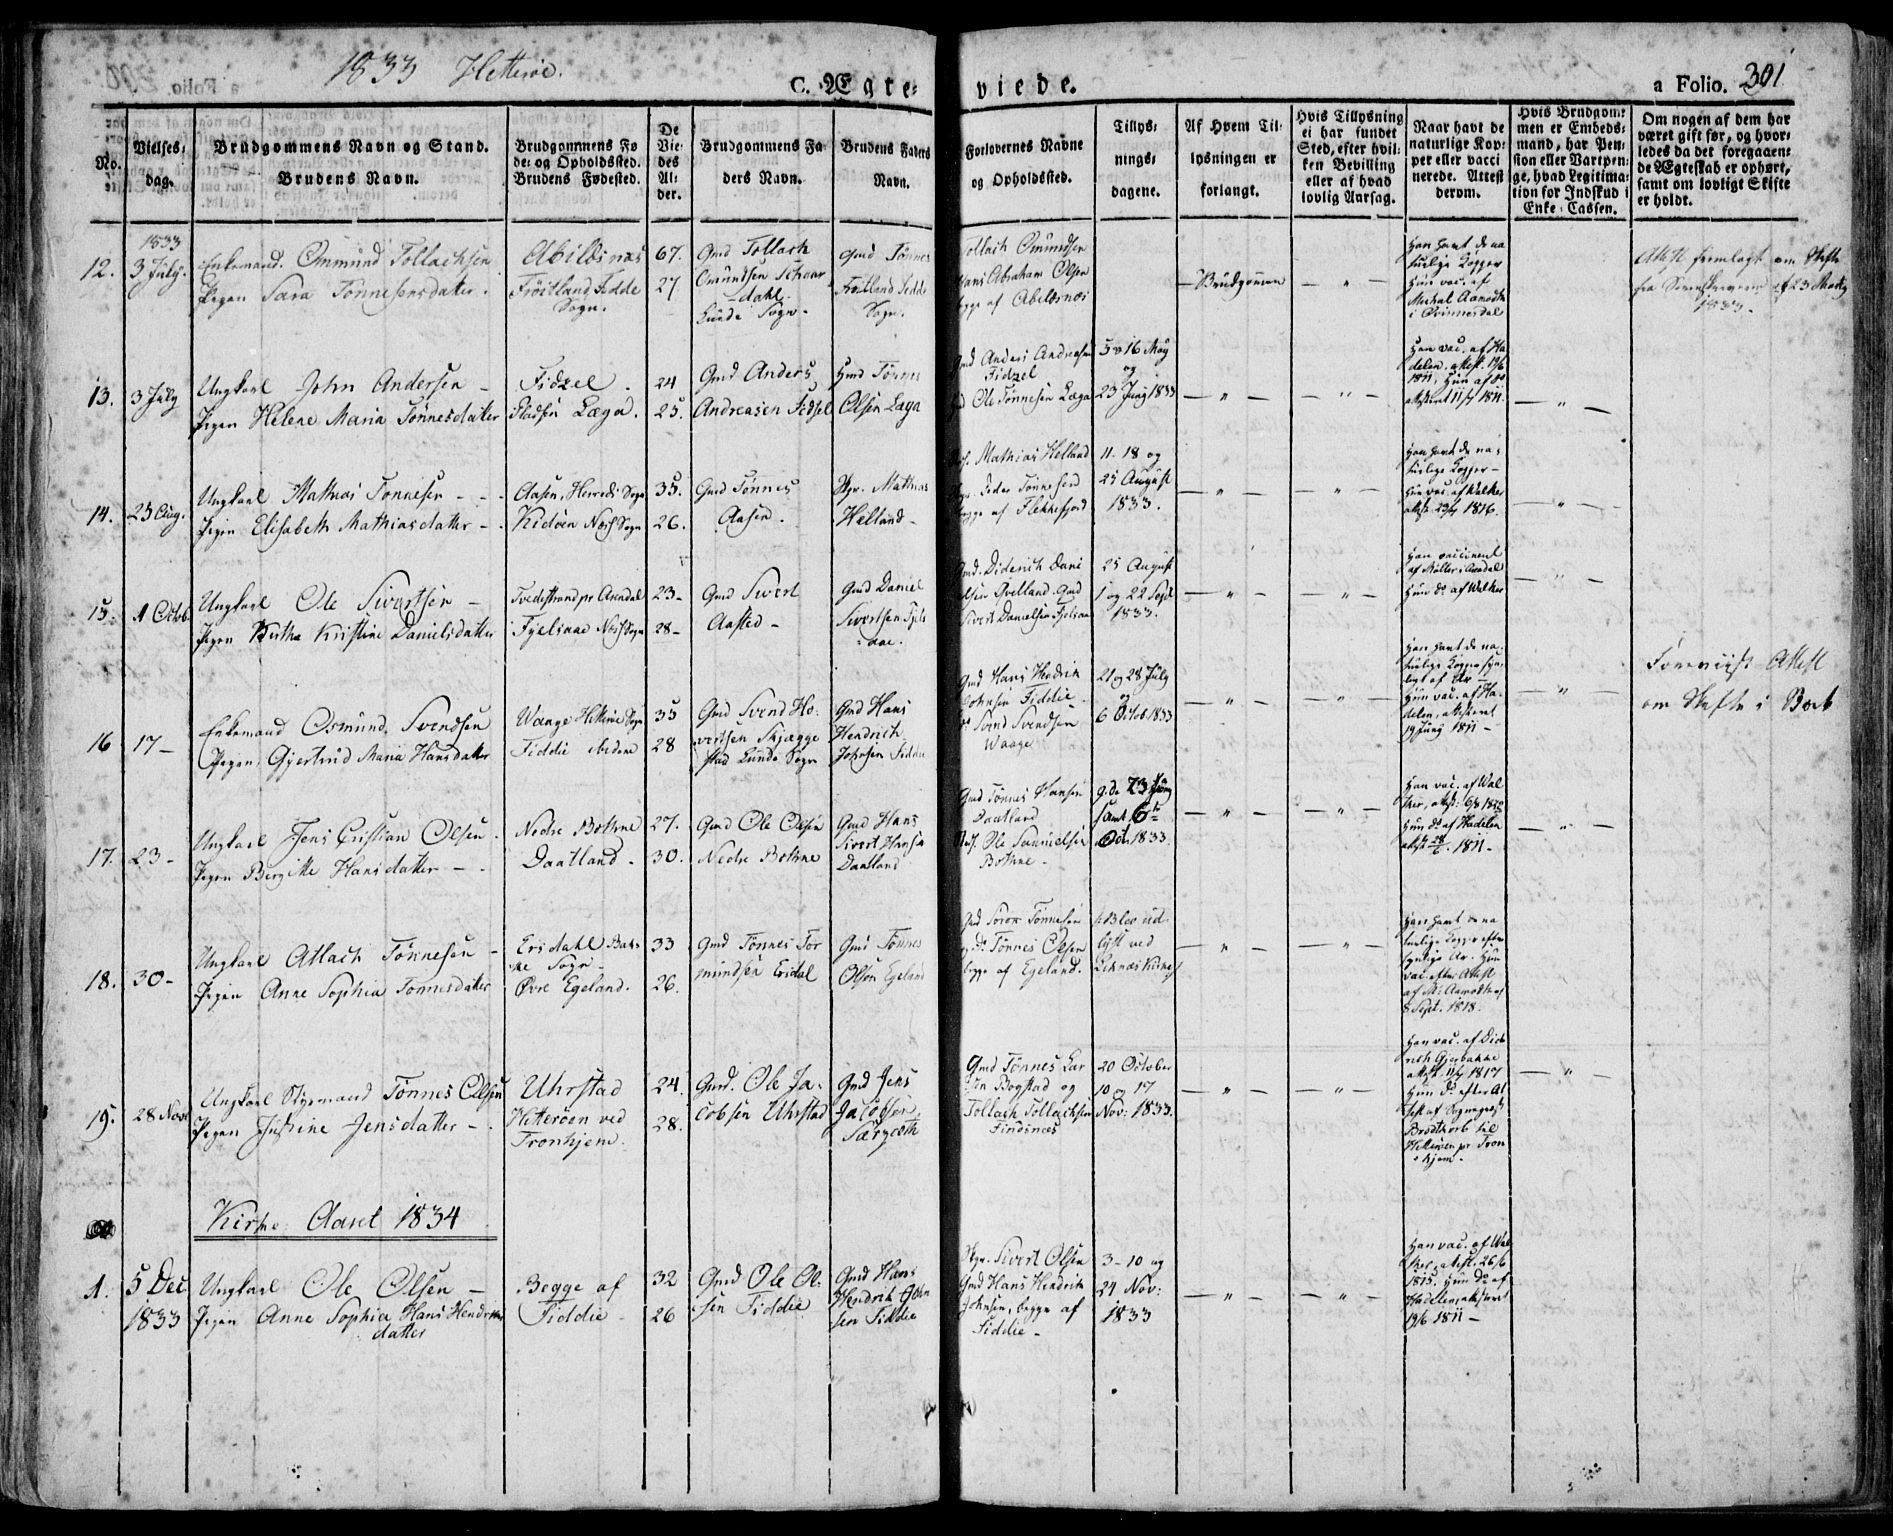 1833 Hetteröe.
C. Ægte-
viede.
a Folio. 301
No.
Vielses-
dag.
Brudgommens Navn og Stand.
Brudens Navn.
Brudgommens Fø
de- og Opholdssted.
Brudens Fødested.
De
Vie-
des
Al-
der.
Brudgommens Fa
ders Navn.
Brudens Faders
Navn.
Forlovernes Navne
og Opholdssted.
Tillys-
nings-
dagene.
Af Hvem Til-
lysningen er
forlangt.
Hvis Tillysning
ei har fundet
Sted, efter hvil-
ken Bevilling
eller af hvad
lovlig Aarsag.
Naar havt de
naturlige Kop-
per eller vacci
nerede. Attest
derom.
Hvis Brudgom-
men er Embeds-
mand, har Pen-
sion eller Vartpen-
ge, hvad Legitima-
tion for Indskud i
Enke-Cassen.
Om nogen af dem har
været gift før, og hvor-
ledes da det foregaaen-
de Ægteskab er ophørt,
samt om lovligt Skifte
er holdt.
12.
1833
3 July.
Enkemand. Ommund Tollachsen
Pigen Sara Tönnesensdatter.
Abildsnæs
Fröitland Fedde
Sogn.
67.
27
Gmd Tollach
Omundsen Schaar
dahl.
Lunde Sogn.
Gmd Tönnes
Fröitland Fedde
Sogn.
Tollach Omundsen
Hans Abraham Olsen
begge af Abelsnæs
Brudgommen
Han havt de na
turlige Kopper
Hun vac. af
Michal Aamodt
i Qvinnesdal
Attest fremlagt om Skifte
fra Sorenskriveren af 23 Martz
1833.
13.
3 July
Ungkarl John Andersen
Pigen Helene Maria Tönnesdatter
Fidzel.
Fladsen Læga.
24
25.
Gmd Anders
Andreasen Fidsel
Hmd Tönnes
Olsen Læga
Gmd Anders Andreasen
Fidzel
Gmd Ole Tönnesen Læga
5 & 16 May
og
23 Juny 1833
Han vac. af Ha
delen, attest. 19/6
1811, Hun af Do
attesteret 11/7 1811.
14.
25 Aug.
Ungkarl Mathias Tonnesen
Pigen Elisabeth Mathiasdatter
Aasen, Herreds Sogn
Kidöen Næs Sogn
35.
26.
Gmd Tönnes
Aasen.
Stgr. Mathias
Helland
Mathias Helland
Peder Tönnesen
begge af Flekkefjord
11. 18 og
25 August
1833.
Han havt de na-
turlige Kopper
Hun vac. af Walker
attest. 23/7 1816.
15.
1 Octob.
Ungkarl Ole Sivertsen
Pigen Bertha Kristine Danielsdatter
Tvedestrand pr Arendal
Fjelsaae Næs Sogn
23
28
Gmd Sivert
Aasted
Gmd Daniel
Sivertsen Fjels
aae.
Gmd. Diderich Dani
elsen Qvelland. Gmd
Sivert Danielsen Fjelsaae
25 August
1 og 22 Sept
1833.
Han vaccineret
af Möller i Arendal
Hun Do af Walker
16
17
Enkemand Osmund Svendsen
Pigen Gjertrud Maria Hansdatter
Waage Hitteröe Sogn
Fiddie ibidem
35
28
Gmd Svend Ho-
vertsen Skjægge
stad Lunde Sogn
Gmd Hans
Hendrich
Johnsen Fiddie
Gmd Hans Hendrik
Johnsen Fiddie
Do Svend Svendsen
Waage
21 og 28 July
og
6 Octob. 1833
Han havt de na-
turlige Kopper syn-
ligt af Ar
Hun vac. af Ha-
delen, attesteret
19 Juny 1811
Foreviist Attest
om Skifte i Boet
17.
23
Ungkarl Jens Cristian Olsen
Pigen Bergitte Hansdatter
Nedre Bothne
Daatland
27.
30.
Gmd Ole Olsen
Nedre Bothne
Gmd Hans
Sivert Hansen
Daatland
Gmd Tönnes Hansen
Daatland
Ole Samuelsen
Bothne
samt 6te
Oct. 1833.
Han vac. af Wal
ker, attest.
Hun Do af Hadelen
1811.
18.
30
Ungkarl Atlach Tönnesen
Pigen Anne Sophia Tönnesdatter
Ersdahl Bak-
ke Sogn
Övre Egeland.
33
26.
Gmd Tönnes Tor
mundsen Ersdal
Gmd Tönnes
Olsen Egeland
Gmd Sören Tönnesen
og Do Tönnes Olsen
begge af Egeland.
Blev ud-
lyst ved
Leknæs Kirke
Han havt de na
turlige Kopper efter
synlige Ar. Hun
vac. efter Attest
af M. Aamodt af
8 Sept. 1818.
19.
28 Nov.
Ungkarl Styrmand Tönnes Olsen
Pigen Justine Jensdatter
Uhrstad
Hitteröen ved
Tronhjem.
24.
28.
Gmd. Ole Ja-
cobsen Uhrstad
Gmd Jens
Jacobsen
Gmd Tönnes Lar
sen Bogstad og
Tollach Tollachsen
Findsnæs
20 October
10 og 17
Nov: 1833.
Han vac. af Died
rich Gjerbakke
attest. 1817
Hun Do efter At
test af Sognepræst
Brodtkorb til
Hitteröen pr Tron
hjem.
Kirke-Aaret 1834
1.
5 Dec
1833
Ungkarl Ole Olsen
Pigen Anne Sophia Hans Hendriks
datter
Begge af
Fiddie
32
26
Gmd Ole Ol-
sen Fiddie
Gmd Hans
Hendrik John
sen Fiddie
Stgr. Sivert Olsen
Gmd Hans Hendrik
Johnsen, begge af
Fiddie
3 - 10 og
24 Nov:
1833
Han vac. af Wal
ker, attest. 26/6
1815. Hun Do af
Hadelen, attesteret
19/6 1811